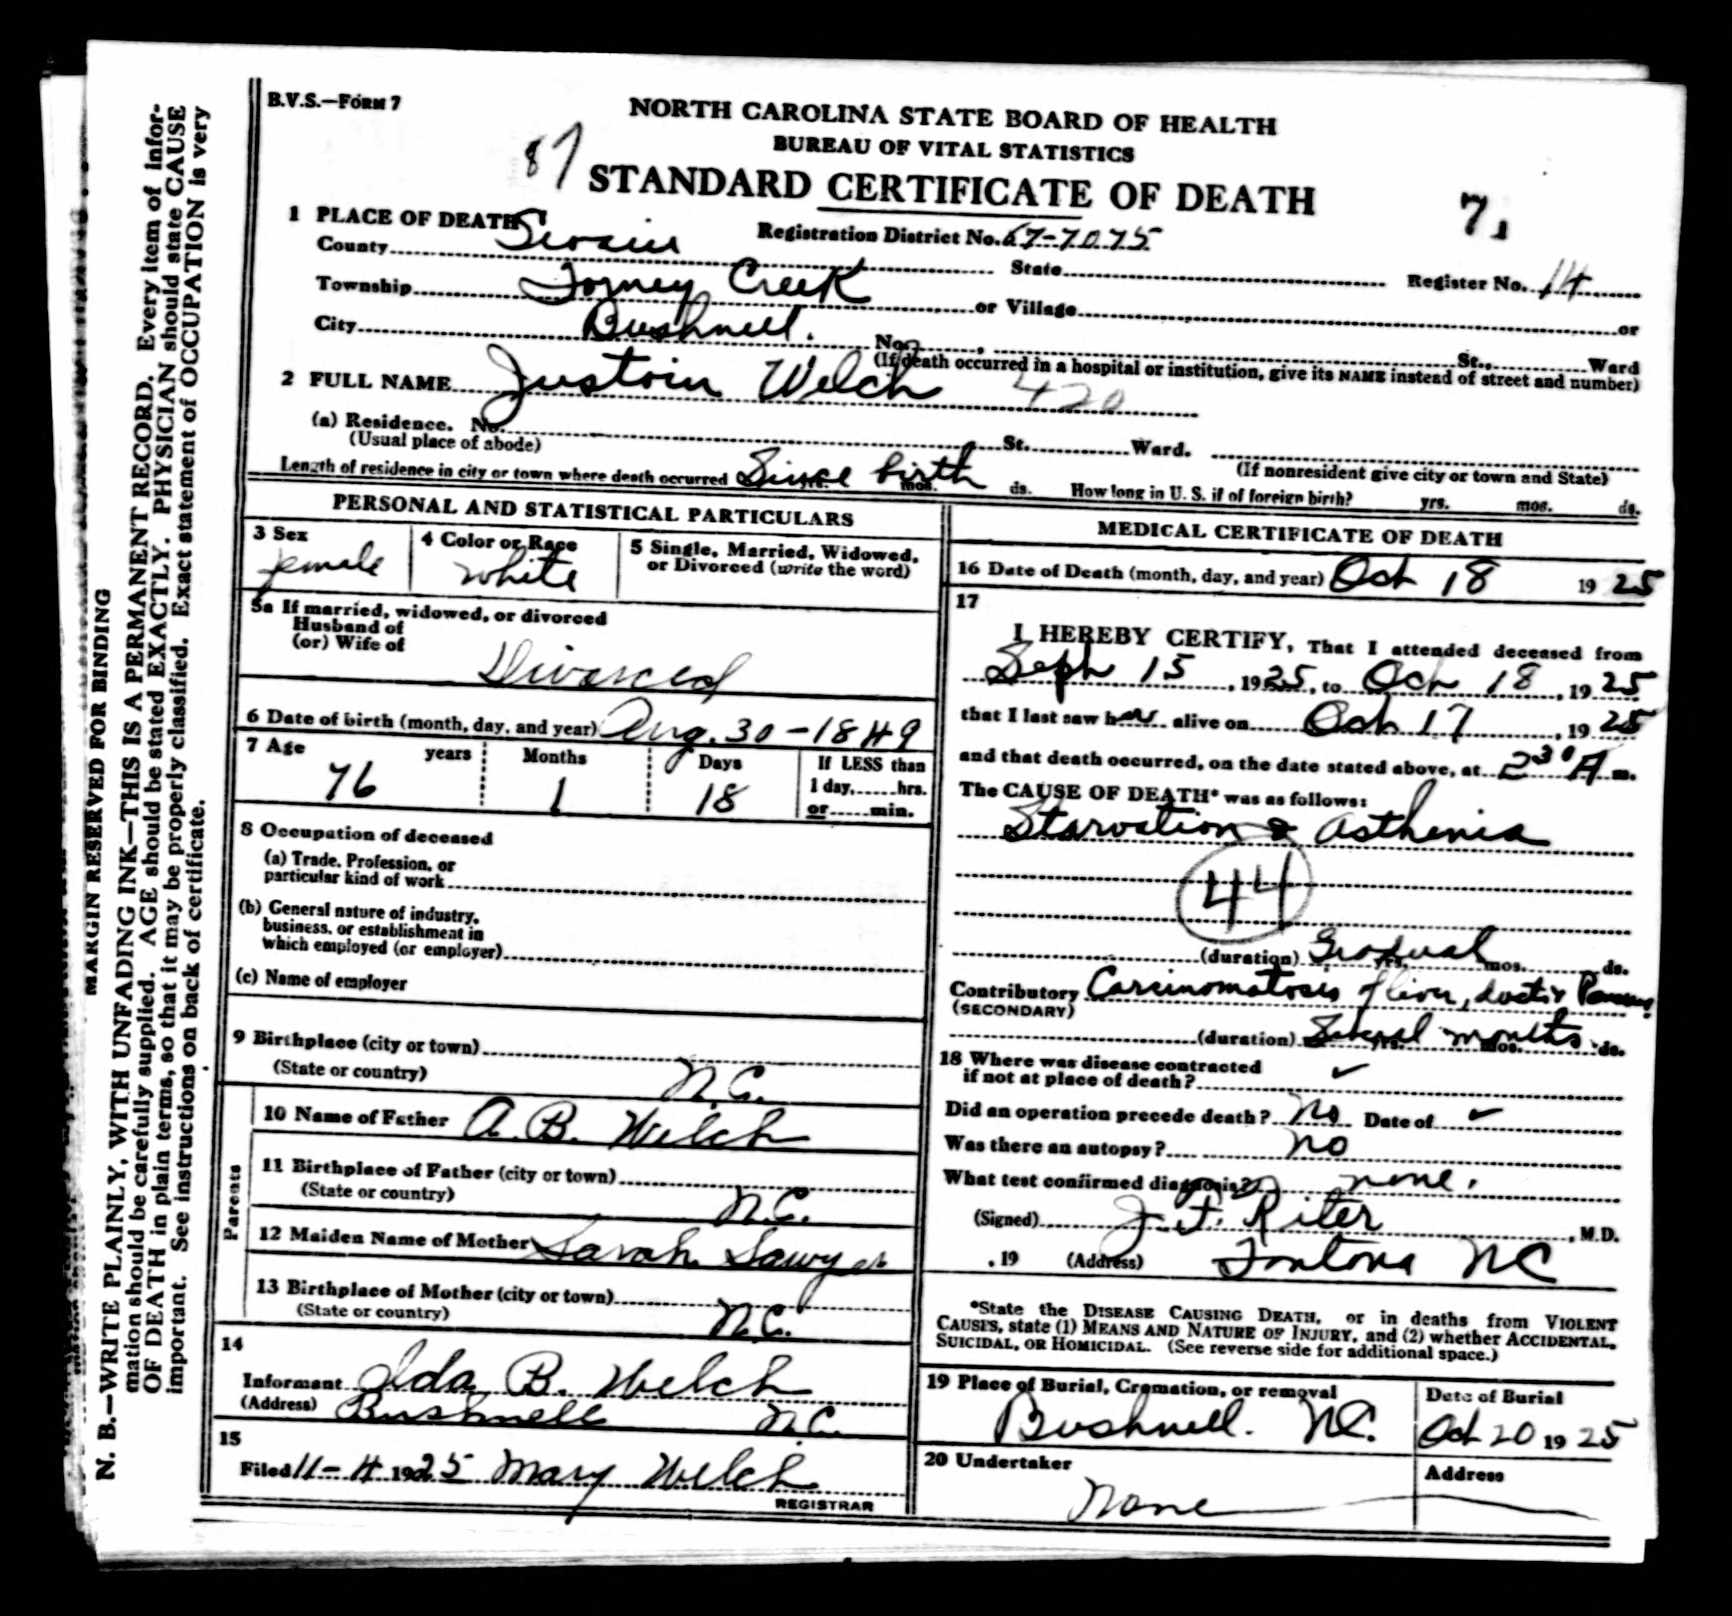 B.V.S.—FORM 7
NORTH CAROLINA STATE BOARD OF HEALTH
BUREAU OF VITAL STATISTICS
87
STANDARD CERTIFICATE OF DEATH
71
1 PLACE OF DEATH
Registration District No. 67-7075
County Swain State Register No. 14
Township Forney Creek or Village or
City Bushnell. No. St., Ward
(If death occurred in a hospital or institution, give its NAME instead of street and number)
2 FULL NAME Justoin Welch 420
(a) Residence. No. St. Ward.
(Usual place of abode) (If nonresident give city or town and State)
Length of residence in city or town where death occurred Since birth yrs. mos. ds. How long in U. S. if of foreign birth? yrs. mos. ds.
PERSONAL AND STATISTICAL PARTICULARS
3 Sex female
4 Color or Race white
5 Single, Married, Widowed, or Divorced (write the word)
5a If married, widowed, or divorced
Husband of
(or) Wife of
Divorced
6 Date of birth (month, day, and year) Aug. 30 - 1849
7 Age years Months Days If LESS than
76 1 18 1 day, hrs.
or min.
8 Occupation of deceased
(a) Trade, Profession, or
particular kind of work
(b) General nature of industry,
business, or establishment in
which employed (or employer)
(c) Name of employer
9 Birthplace (city or town)
(State or country) N.C.
Parents
10 Name of Father A. B. Welch
11 Birthplace of Father (city or town)
(State or country) N.C.
12 Maiden Name of Mother Sarah Sawyer
13 Birthplace of Mother (city or town)
(State or country) N.C.
14
Informant Ida B. Welch
(Address) Bushnell N.C.
15
Filed 11-4 1925 Mary Welch
REGISTRAR
MEDICAL CERTIFICATE OF DEATH
16 Date of Death (month, day, and year) Oct 18 1925
17
I HEREBY CERTIFY, That I attended deceased from
Sept 15, 1925, to Oct 18, 1925
that I last saw her alive on Oct 17, 1925
and that death occurred, on the date stated above, at 2 30 A m.
The CAUSE OF DEATH* was as follows:
Starvation & Asthenia
44
(duration) Gradual yrs. mos. ds.
Contributory Carcinomatosis of liver, ducts &
(SECONDARY)
(duration) Several months yrs. mos. ds.
18 Where was disease contracted
if not at place of death? ✓
Did an operation precede death? No Date of ✓
Was there an autopsy? no
What test confirmed diagnosis? none.
(Signed) J. F. Riter, M.D.
, 19 (Address) Fontana NC
*State the DISEASE CAUSING DEATH, or in deaths from VIOLENT
CAUSES, state (1) MEANS AND NATURE OF INJURY, and (2) whether ACCIDENTAL,
SUICIDAL, OR HOMICIDAL. (See reverse side for additional space.)
19 Place of Burial, Cremation, or removal Date of Burial
Bushnell. NC. Oct 20 1925
20 Undertaker Address
None
MARGIN RESERVED FOR BINDING
N. B.—WRITE PLAINLY, WITH UNFADING INK—THIS IS A PERMANENT RECORD. Every item of infor-
mation should be carefully supplied. AGE should be stated EXACTLY. PHYSICIAN should state CAUSE
OF DEATH in plain terms, so that it may be properly classified. Exact statement of OCCUPATION is very
important. See instructions on back of certificate.